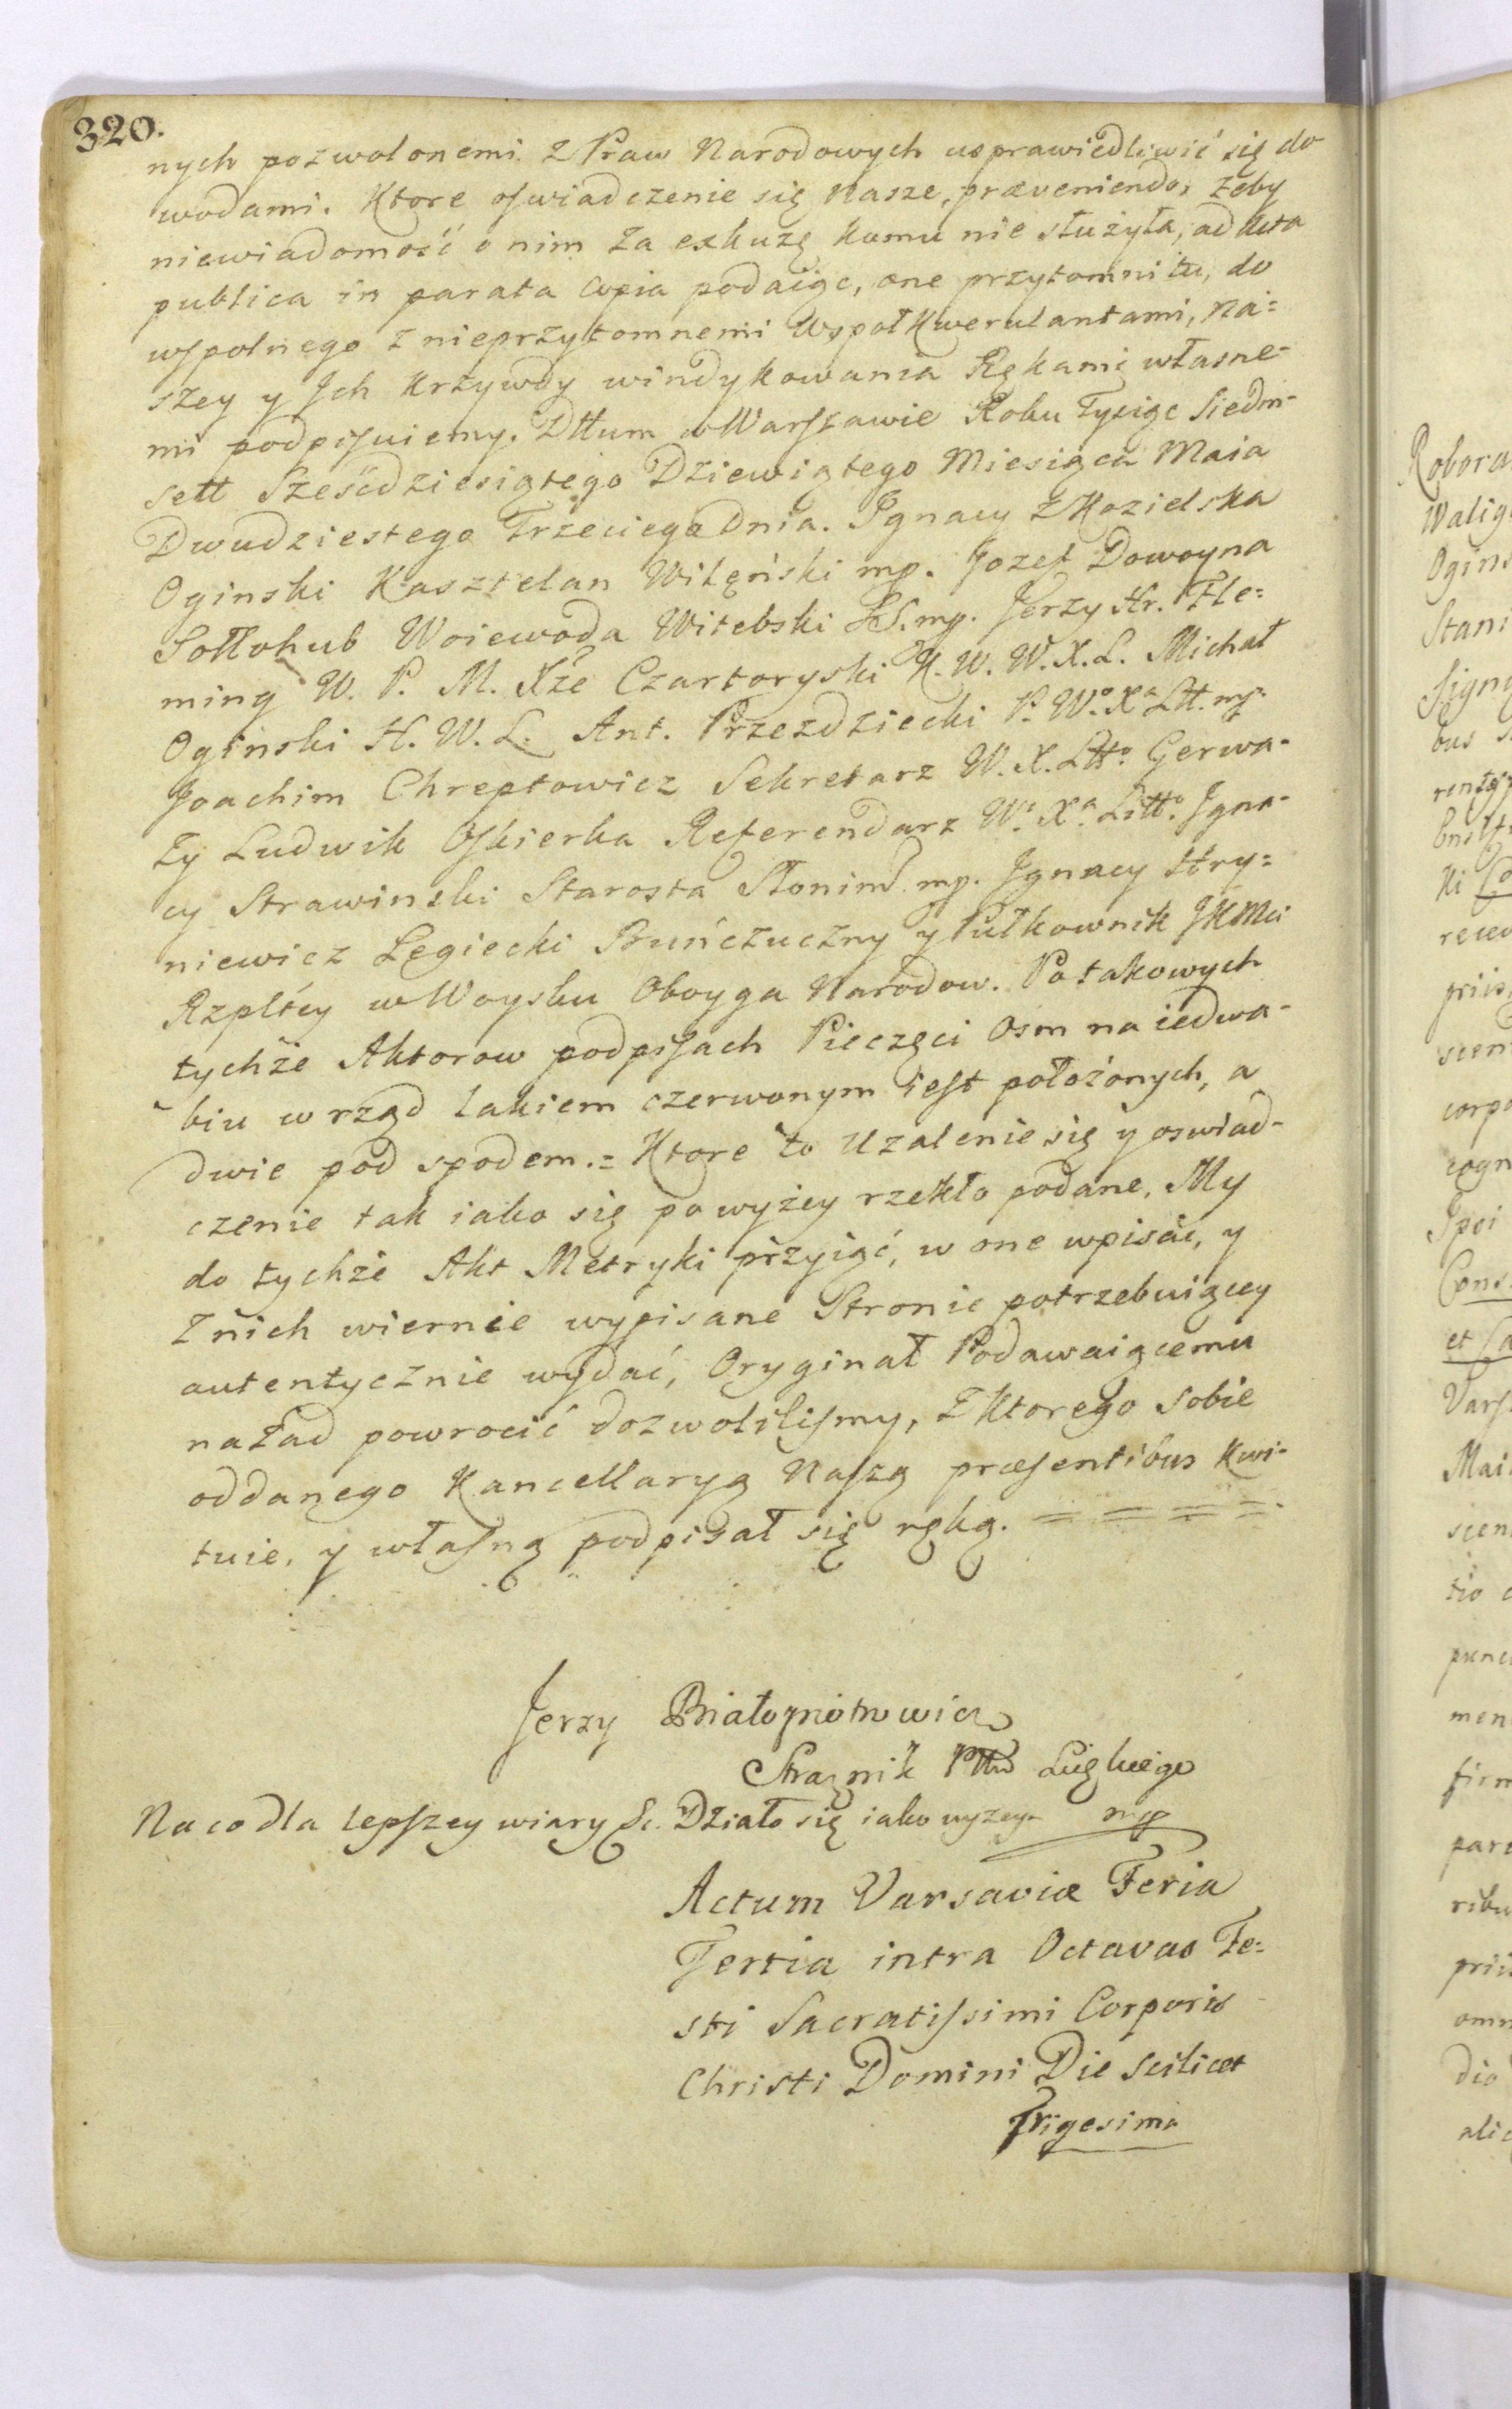 320.
nych pozwolonemi z Praw Narodowych usprawiedliwić się do
wodami. Ktore oswiadczenie się nasze, præveniendo, żeby
niewiadomość o nim za exkuzę komu nie służyła, ad Acta
publica in parata Copia podaiąc, one przytomni tu, do
wspolnego z nieprzytomnemi Wspołkwerulantami, Na=
szey y Jch Krzywdy windykowania Rękami własne-
mi podpisuiemy. Dttum w Warszawie Roku Tysiąc Siedm-
sett Sześcdziesiątego Dziewiątego Miesiąca Maia
Dwudziestego Trzeciego Dnia. Jgnacy z Kozielska
Oginski Kasztelan Wileński mp. Jozef Dowoyna
Sołłohub Woiewoda Witebski LS. mp. Jerzy Hr. Fle=
ming W. P. M. Xże Czartoryski K. W. W. X. L. Michał
Oginski H. W. L. Ant. Przezdziecki P. Wo. Xa Ltt. mp.
Joachim Chreptowicz Sekretarz W. X. Ltto Gerwa-
zy Ludwik Oskierka Referendarz Wo Xa Litto. Jgna-
cy Strawinski Starosta Słonim. mp. Jgnacy Hry=
niewicz Legiecki Buńczuczny y Pułkownik JKMci
Rzpltey w Woysku Oboyga Narodow. Po takowych
tychże Aktorow podpisach Pieczęci Osm na iedwa-
biu w rząd lakiem czerwonym iest położonych, a
dwie pod spodem.= Ktore to Uzalenie się y oswiad-
czenie tak iako się powyżey rzekło podane, My
do tychże Akt Metryki przyiąć, w one wpisać, y
z nich wiernie wypisane Stronie potrzebuiącey
autentycznie wydać, Oryginał Podawaiącemu
nazad powrocić dozwolilismy, z ktorego sobie
oddanego Kancellaryą Naszą præsentibus kwi-
tuie, y własną podpisał się ręką. = = = =
Jerzy Białopiotrowicz
Strażnik Pttu Lidzkiego
mp
Na co dla lepszey wiary &c. Działo się iako wyzey.
Actum Varsaviæ Feria
Tertia intra Octavas Fe=
sti Sacratissimi Corporis
Christi Domini Die scilicet
Trigesima
Robora
Walig
Ogins
Stani
Signa
bus
Ki
corpo
cogn
Cons
et Ca
Vars
Mai
scen
tio
punc
men
firm
pare
ribu
priis
omn
dio
alic